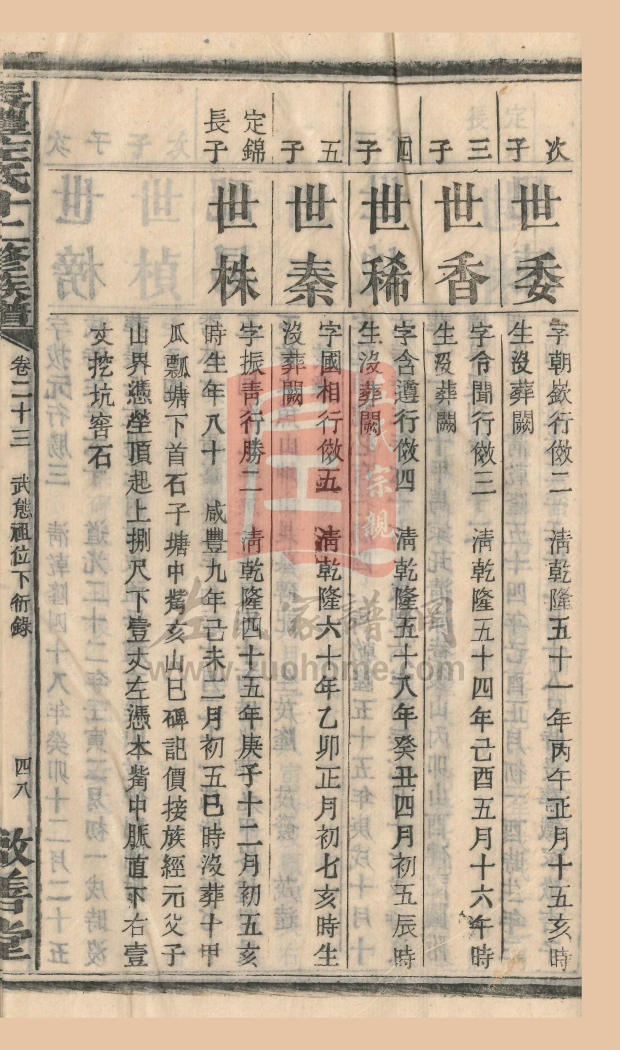 次子
世委
字朝欽行傚二 清乾隆五十一年丙午正月十五亥時
生沒葬闕
三子
世香
字令聞行傚三 清乾隆五十四年己酉五月十六年時
生沒葬闕
四子
世稀
字含遵行傚四 清乾隆五十八年癸丑四月初五辰時
生沒葬闕
五子
世秦
字國相行傚五 清乾隆六十年乙卯正月初七亥時生
沒葬闕
定錦長子
世株
字振靑行勝二 清乾隆四十五年庚子十二月初五亥
時生年八十 咸豐九年己未二月初五巳時沒葬十甲
瓜瓢塘下首石子塘中觜亥山巳碑記價接族經元父子
山界憑塋頂起上捌尺下壹丈左憑本觜中脈直下右壹
丈挖坑窖石
左氏十二修族譜
卷二十三 武態祖位下衍錄
四八
敦善堂
左氏家譜網
www.zuohome.com
宗親